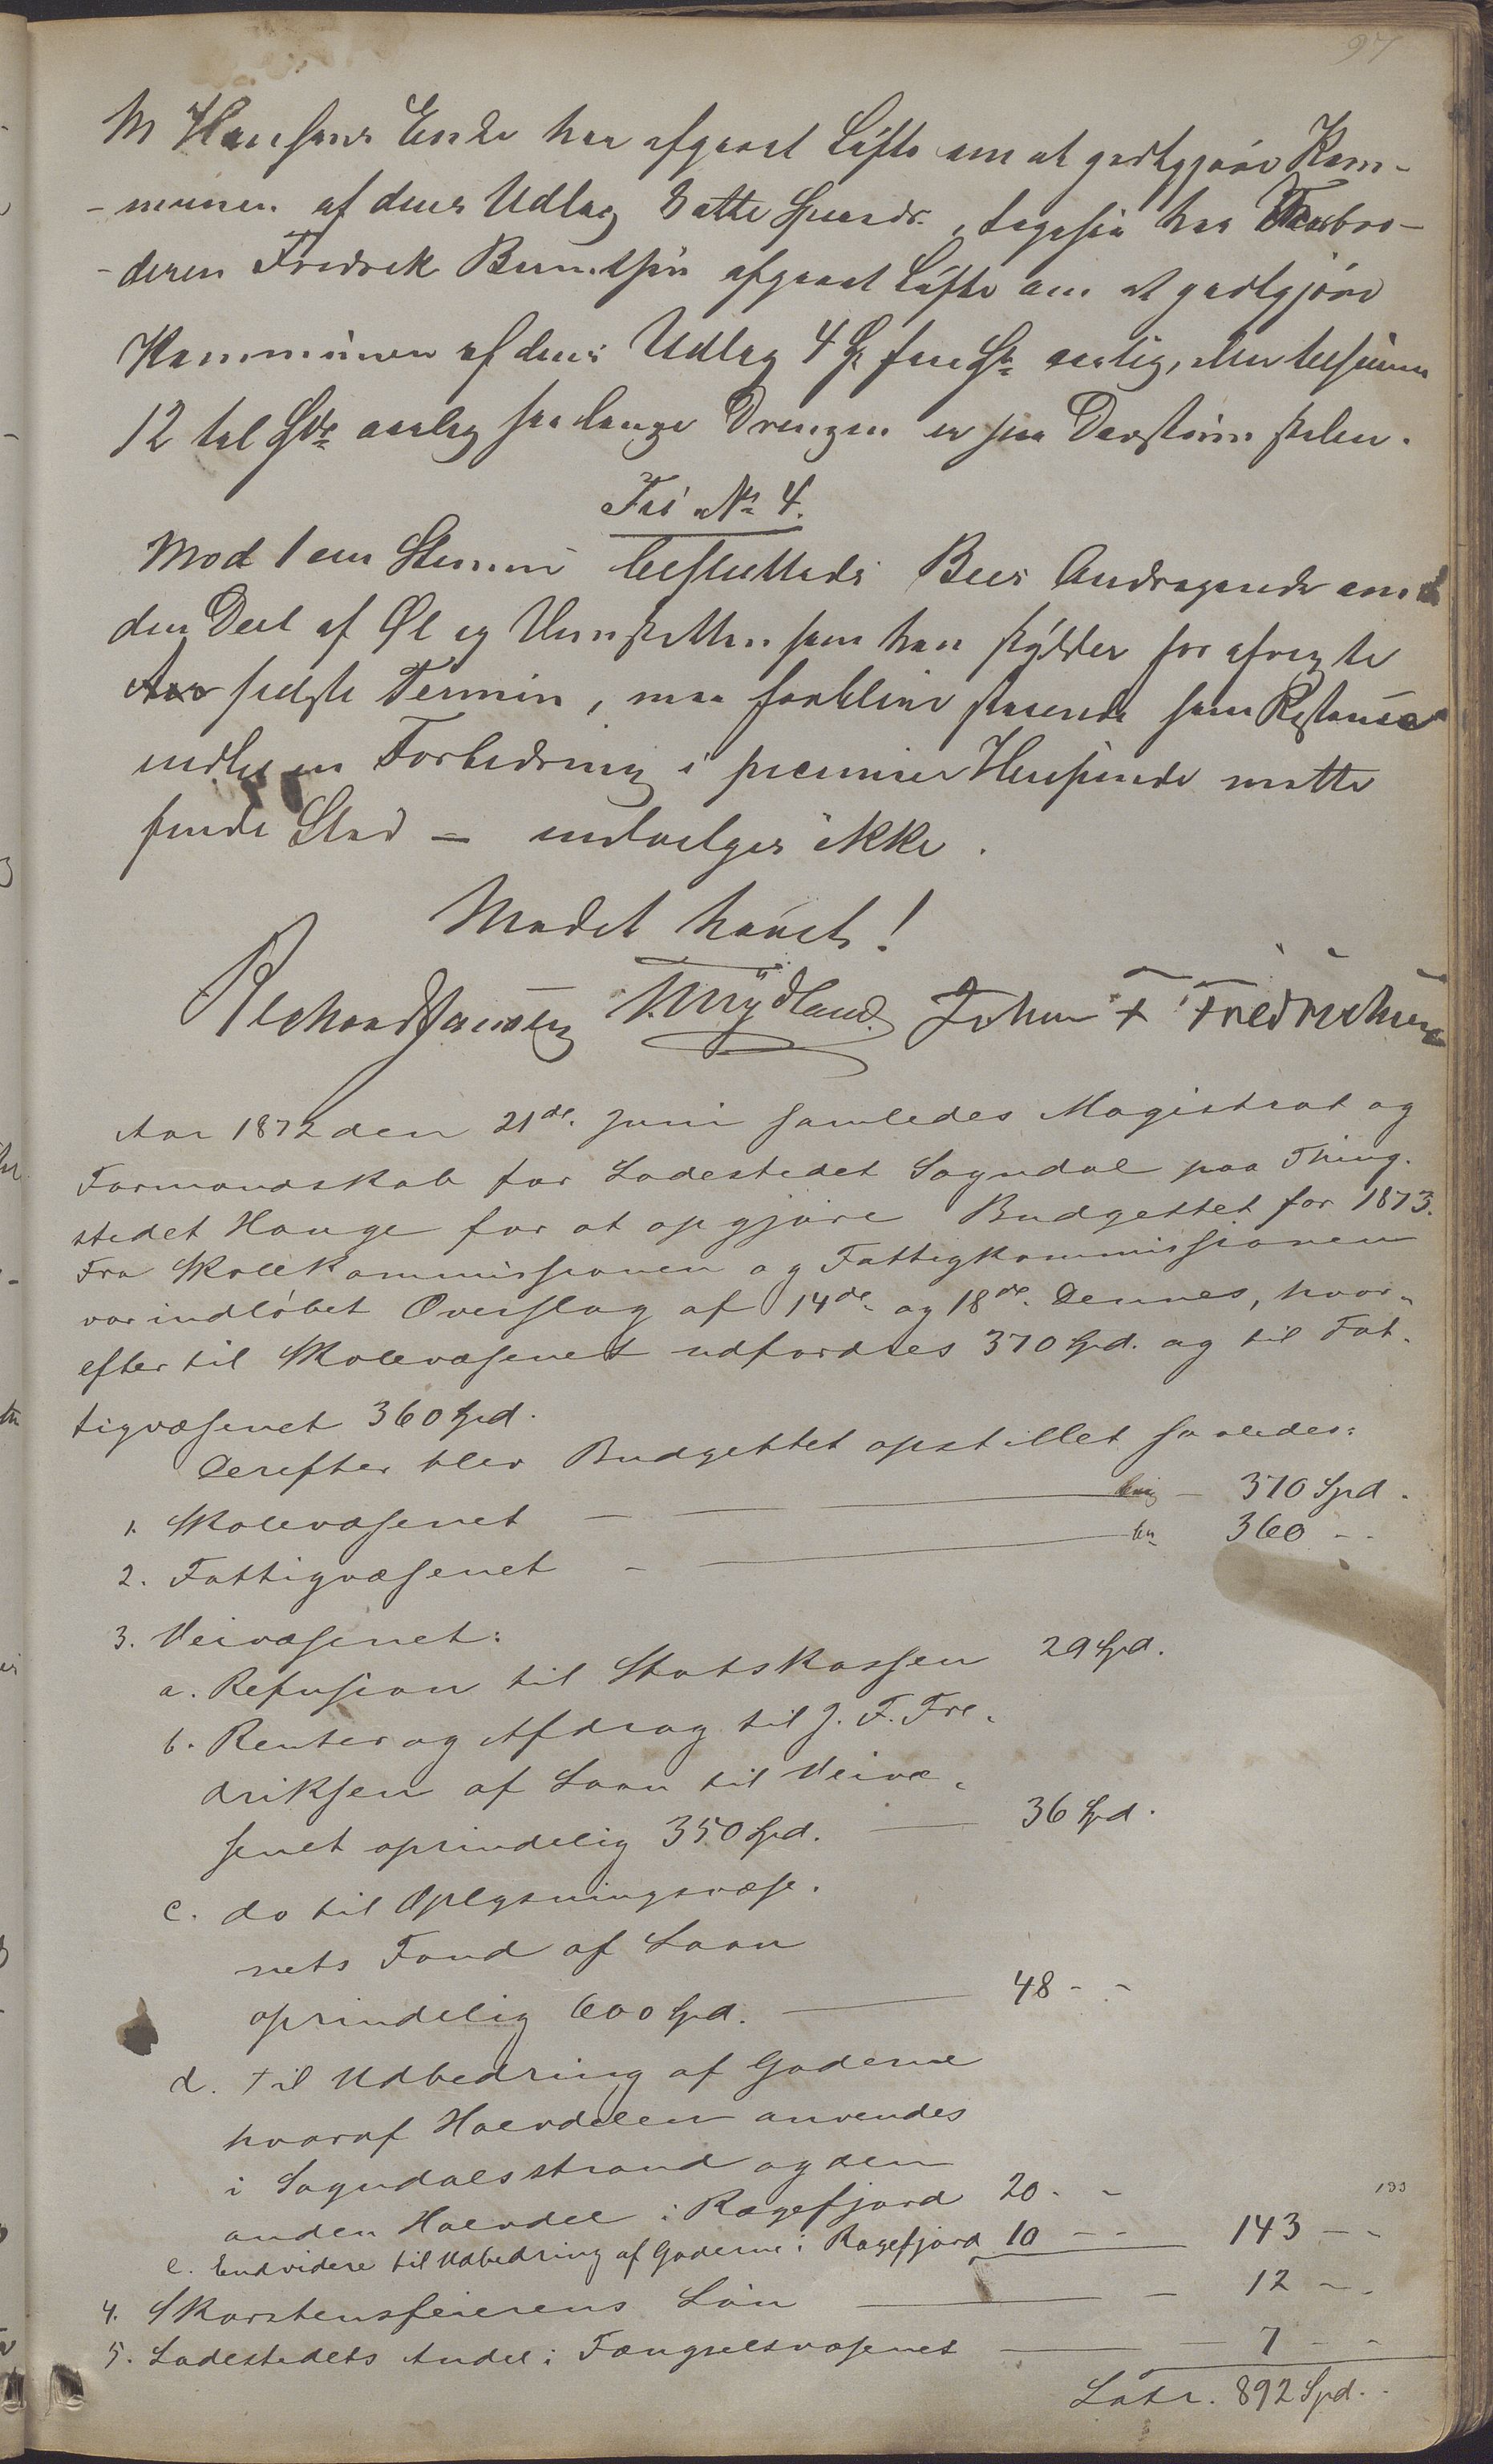 97
M Hansens Enke har afgivet Løfte om at godtgjøre Kom-
-munen af dens Udlag 8 otte Spesdr., ligesaa har Farbro-
-deren Fredrek Berntsøn afgivet Løfte om at godtgjøre
Kommunen af dens Udlag 4 Sp fire Sp aarlig, eller tilsammen
12 tol Spdr aarlig saa længe Drengen er paa Døvstumskolen.
Til No 4.
Mod 1 en Stemme besluttedes Bees Andragende om at
den Deel af Øl og Vinskatten som han skylder for afvigte
Aar sidste Termin, maa forblive staaende som Restance
indtil en Forbedring i pecuniær Henseende maatte
finde Sted = indvilges ikke.
Mødet hævet!
Richard Hansen T. Mydland John F Fredrichsen
Aar 1872 den 21de Juni samledes Magistrat og
Formandskab for Ladestedet Sogndal paa Thing-
stedet Hauge for at opgjøre Budgettet for 1873.
Fra Skolekommissionen og Fattigkommissionen
var indløbet Overslag af 14de og 18de Dennes, hvor-
efter til Skolevæsenet udfordres 370 Spd. og til Fat-
tigvæsenet 360 Spd.
Derefter blev Budgettet opstillet saaledes:
1. Skolevæsenet — 370 Spd.
2. Fattigvæsenet — 360 - -
3. Veivæsenet:
a. Refusion til Statskassen 29 Spd.
b. Renter og Afdrag til J. F. Fre-
driksen af Laan til Veivæ-
senet oprindelig 350 Spd. — 36 Spd.
c. do til Oplysningsvæse-
nets Fond af Laan
oprindelig 600 Spd. — 48 - -
d. til Udbedring af Gaderne
hvoraf Halvdelen anvendes
i Sogndalsstrand og den
anden Halvdel i Ragefjord 20 - -
e. Endvidere til Udbedring af Gaderne i Ragefjord 10 - - 143 - -
4. Skorstensfeierens Løn — 12 - -
5. Ladestedets Andel i Fængselsvæsenet — 7 - -
Latr. 892 Spd. -